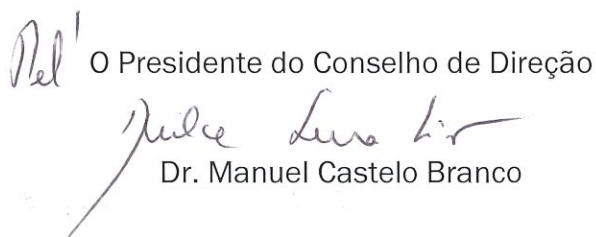 Pel' O Presidente do Conselho de Direção
Dulce
Dr. Manuel Castelo Branco